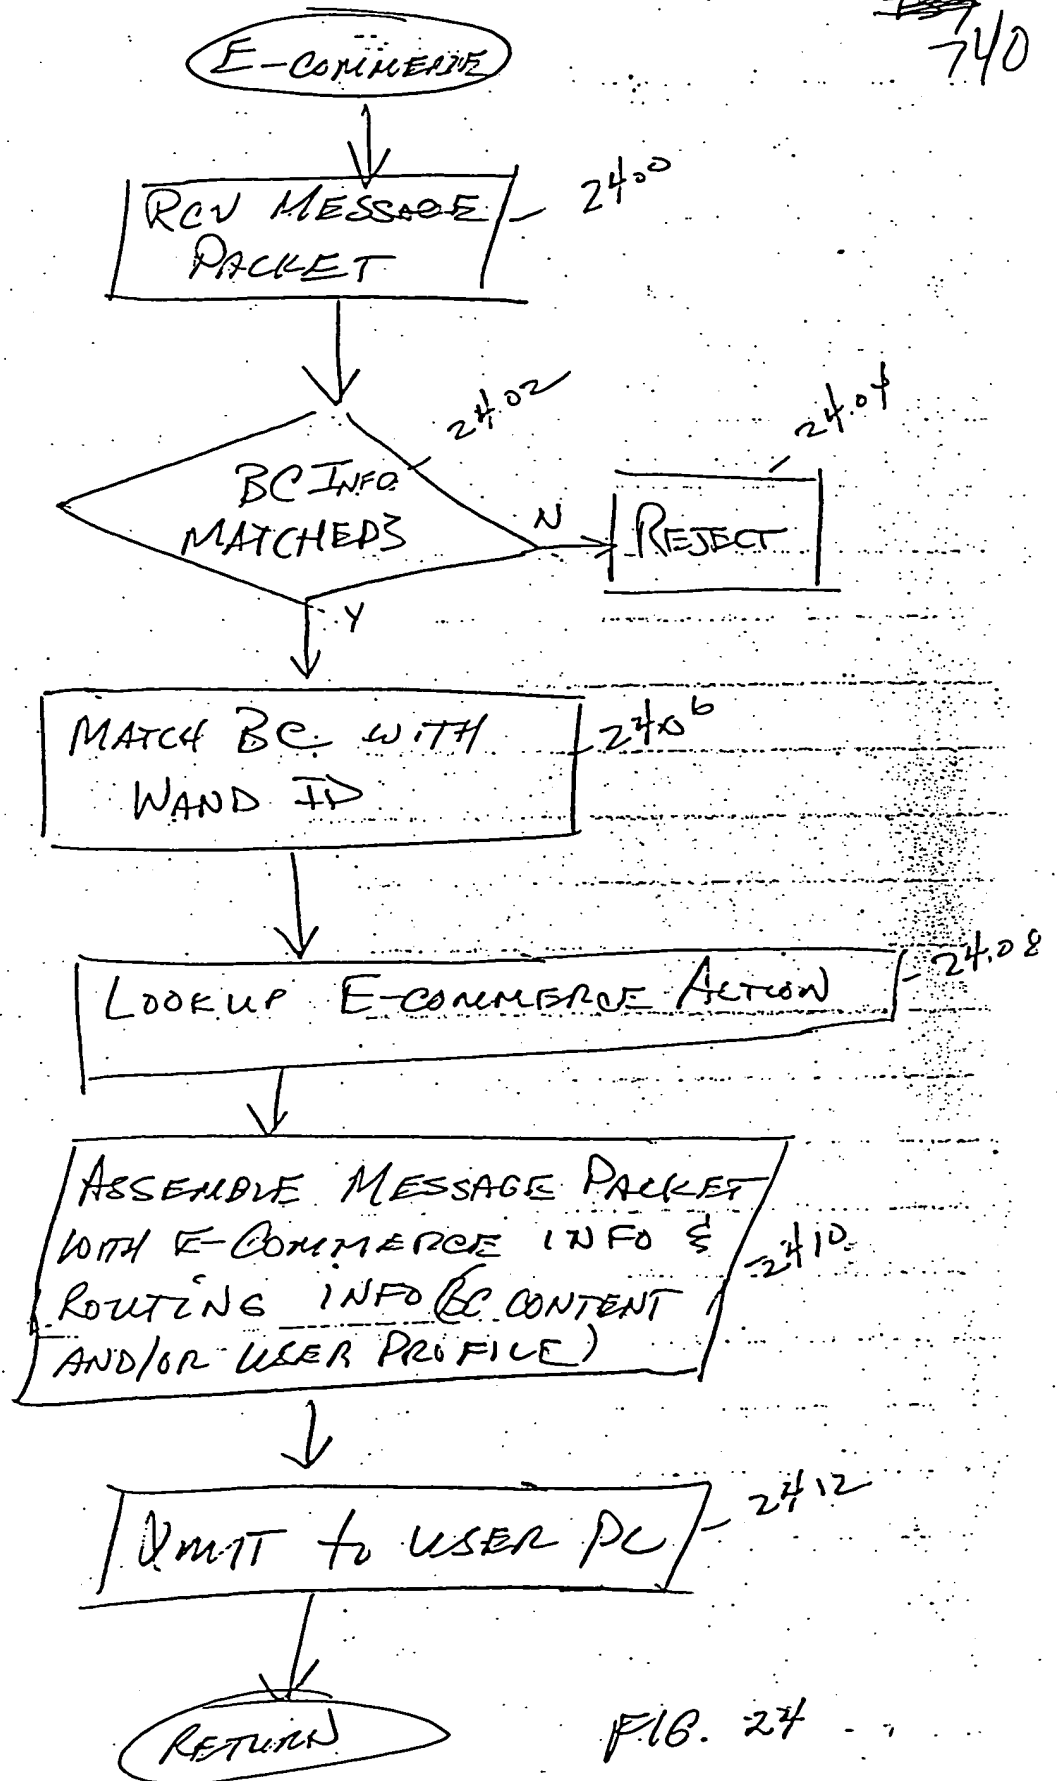 740
E-COMMERCE
RCV MESSAGE
PACKET
2400
2402
2404
BC INFO
MATCHED?
N
REJECT
Y
MATCH BC WITH
WAND ID
2406
LOOKUP E-COMMERCE ACTION
2408
ASSEMBLE MESSAGE PACKET
WITH E-COMMERCE INFO &
ROUTING INFO (BC CONTENT
AND/OR USER PROFILE)
2410
XMIT to USER PC
2412
RETURN
FIG. 24